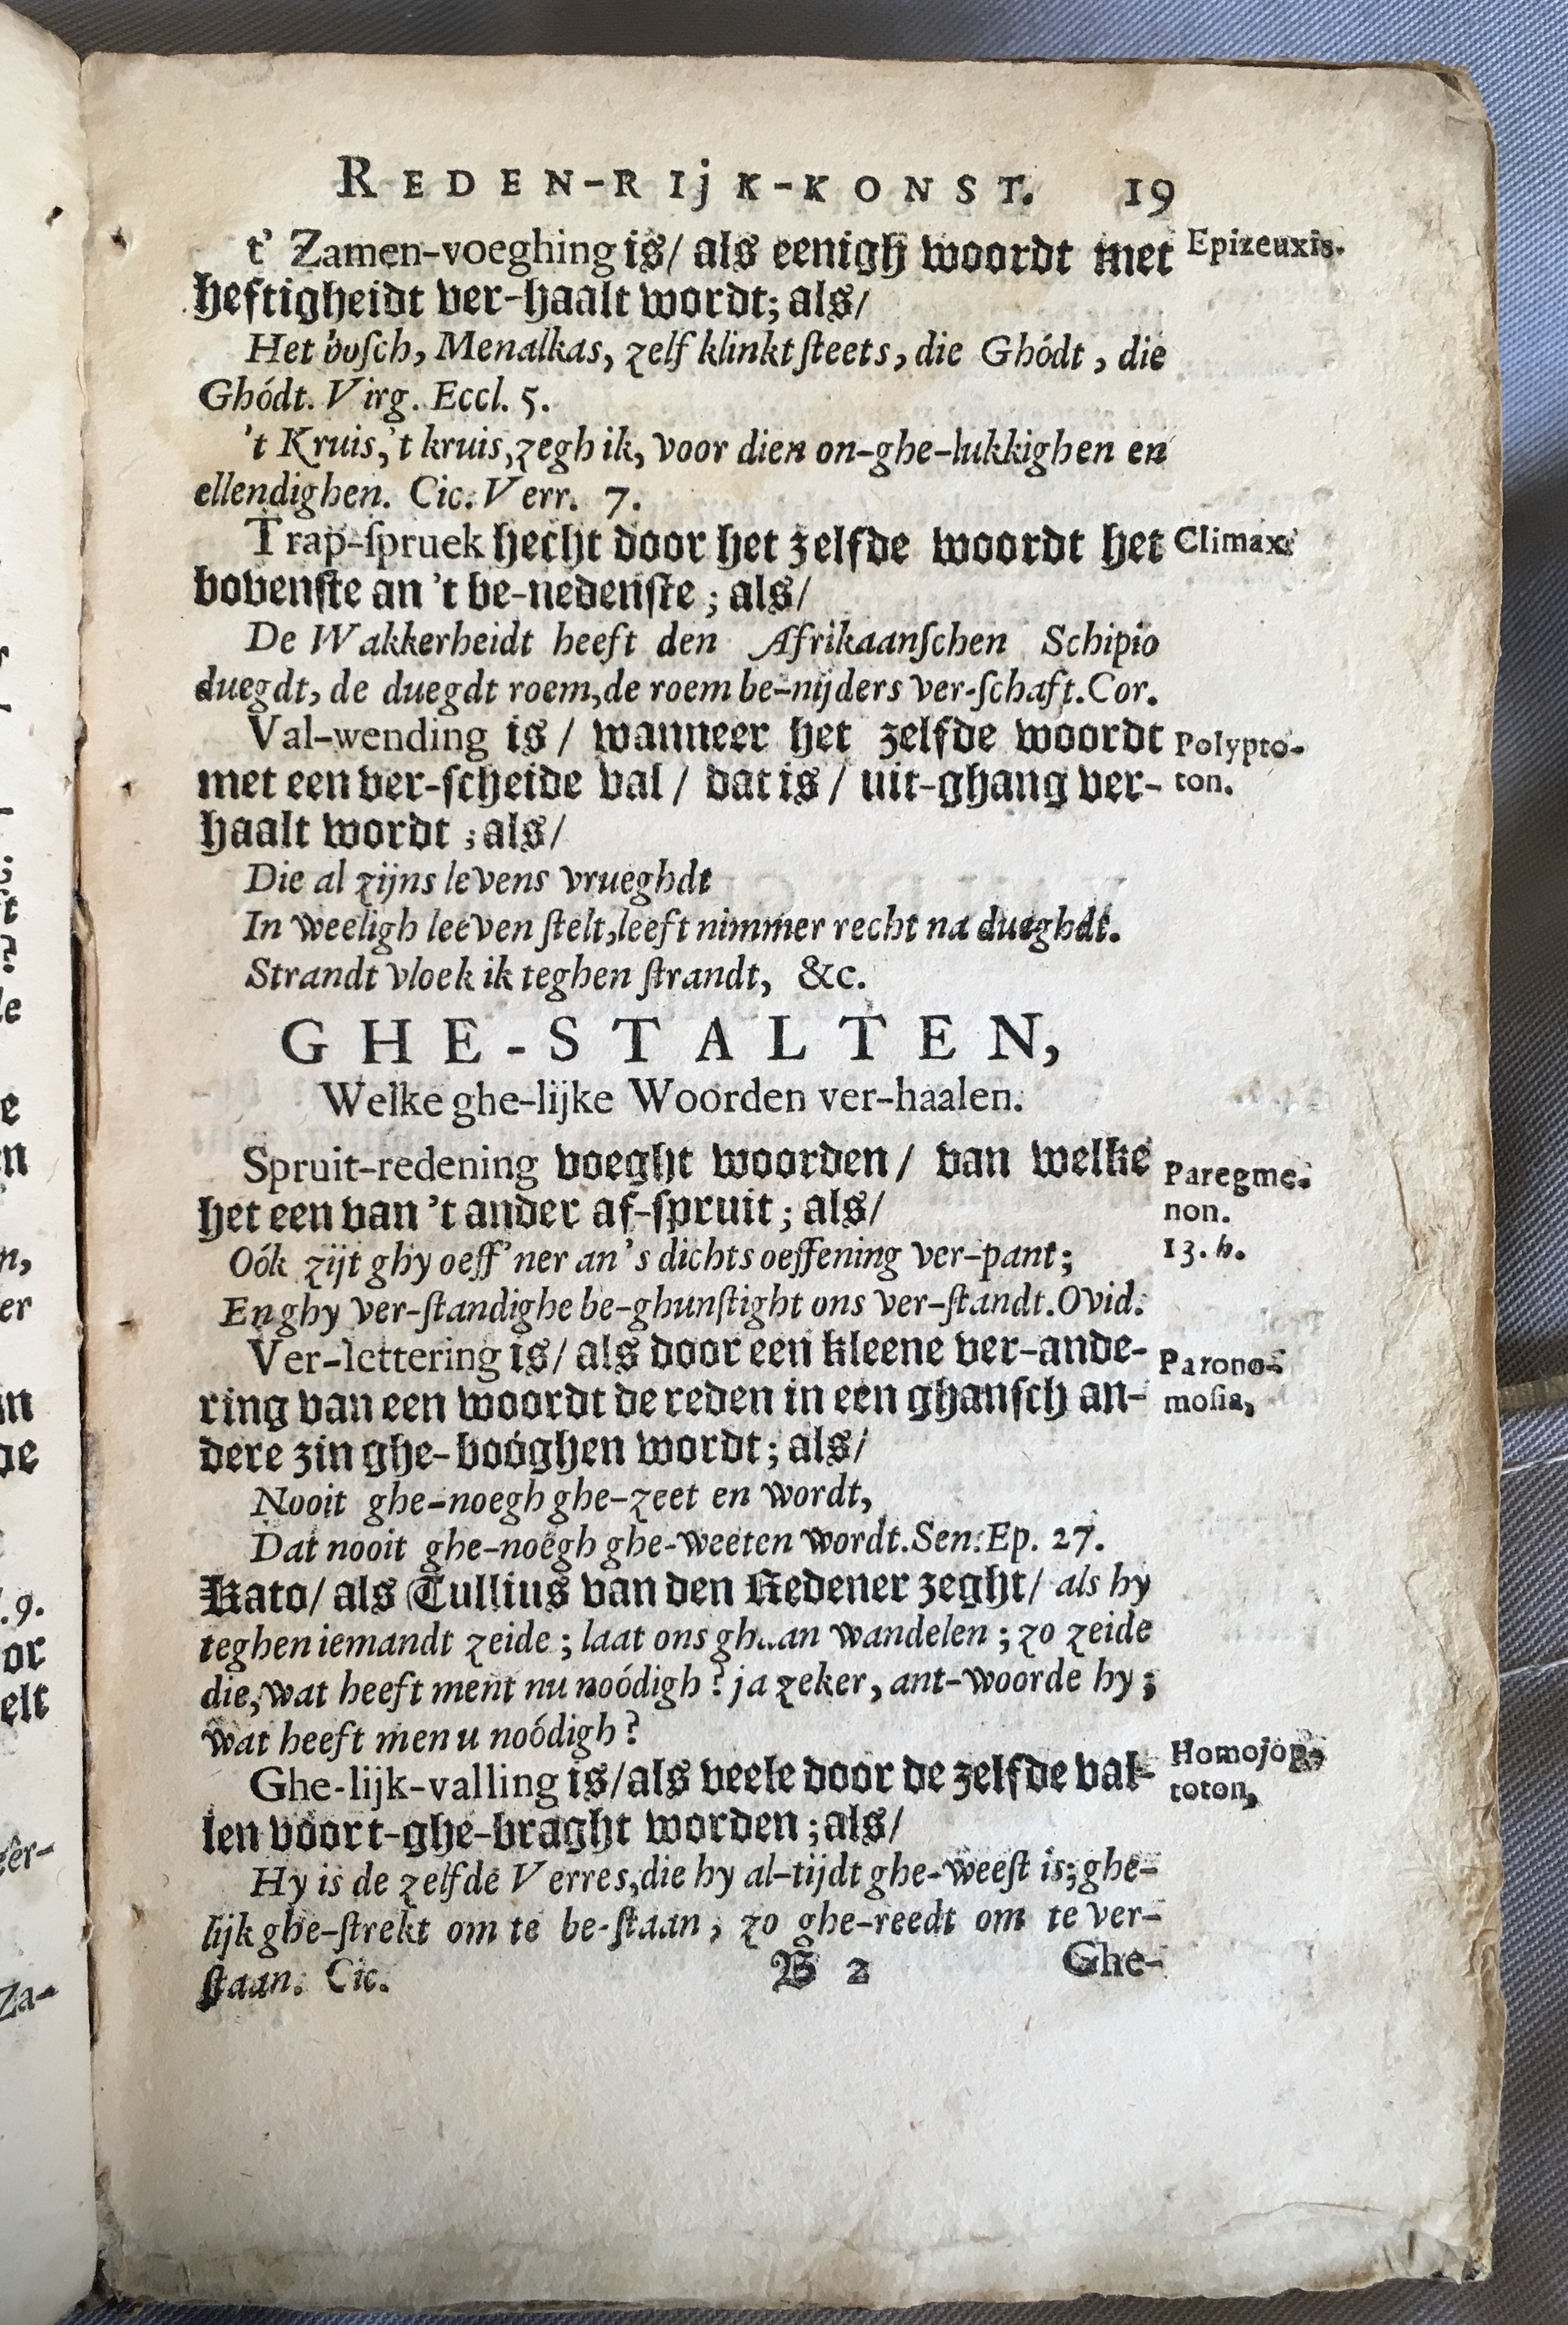 REDEN-RIjK-KONST. 19
t' Zamen-voeghing is/ als eenigh woordt met
Epizeuxis.
heftigheidt ver-haalt wordt; als/
Het bosch, Menalkas, zelf klinkt steets, die Ghódt, die
Ghódt. Virg. Eccl. 5.
't Kruis, 't kruis, zegh ik, voor dien on-ghe-lukkighen en
ellendighen. Cic. Verr. 7.
Trap-spruek hecht door het zelfde woordt het
Climax.
bovenste an 't be-nedenste; als/
De Wakkerheidt heeft den Afrikaanschen Schipio
duegdt, de duegdt roem, de roem be-nijders ver-schaft. Cor.
Val-wending is/ wanneer het zelfde woordt
Polypto-
met een ver-scheide val/ dat is/ uit-ghang ver-
ton.
haalt wordt; als/
Die al zijns levens vrueghdt
In weeligh leeven stelt, leeft nimmer recht na dueghdt.
Strandt vloek ik teghen strandt, &c.
GHE-STALTEN,
Welke ghe-lijke Woorden ver-haalen.
Spruit-redening voeght woorden/ van welke
Paregme-
het een van 't ander af-spruit; als/
non.
13. h.
Oók zijt ghy oeff'ner an's dichts oeffening ver-pant;
En ghy ver-standighe be-ghunstight ons ver-standt. Ovid.
Ver-lettering is/ als door een kleene ver-ande-
Parono-
ring van een woordt de reden in een ghansch an-
mosia,
dere zin ghe-boóghen wordt; als/
Nooit ghe-noegh ghe-zeet en wordt,
Dat nooit ghe-noegh ghe-weeten wordt. Sen. Ep. 27.
Kato/ als Tullius van den Redener zeght/ als hy
teghen iemandt zeide; laat ons ghaan wandelen; zo zeide
die, wat heeft ment nu noódigh? ja zeker, ant-woorde hy;
wat heeft men u noódigh?
Ghe-lijk-valling is/ als veele door de zelfde val-
Homojop-
len vóort-ghe-braght worden; als/
toton,
Hy is de zelfde Verres, die hy al-tijdt ghe-weest is; ghe-
lijk ghe-strekt om te be-staan, zo ghe-reedt om te ver-
staan. Cic.
B 2 Ghe-